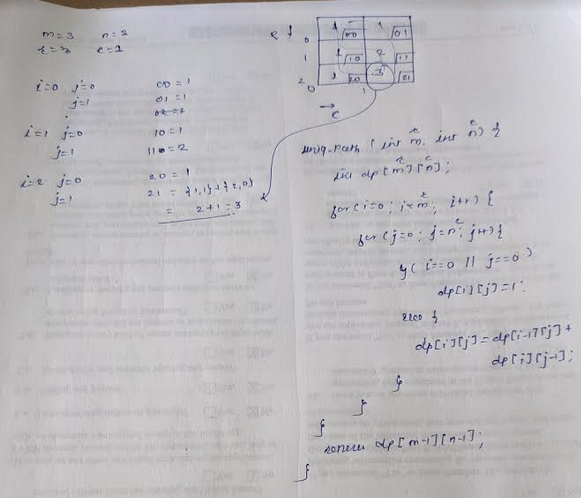 m=3 n=2
i=0 j=0 00 = 1
j=1 01 = 1
i=1 j=0 10 = 1
j=1 11 = 2
i=2 j=0 20 = 1
j=1 21 = {1,1}+{2,0}
= 2+1=3
0 1 00 1 01
1 1 10 2 11
2 1 20 3 21
0 1
c
uniq-path (int m, int n) {
int dp[m][n];
for(i=0; i<m; i++) {
for(j=0; j=n; j++){
if( i==0 || j==0)
dp[i][j]=1;
else {
dp[i][j]=dp[i-1][j]+
dp[i][j-1];
}
}
}
return dp[m-1][n-1];
}